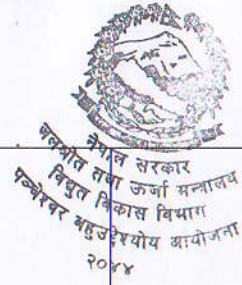 नेपाल सरकार
जलश्रोत तथा ऊर्जा मन्त्रालय
विद्युत विकास विभाग
पञ्चेश्वर बहुउद्देश्यीय आयोजना
२०४४